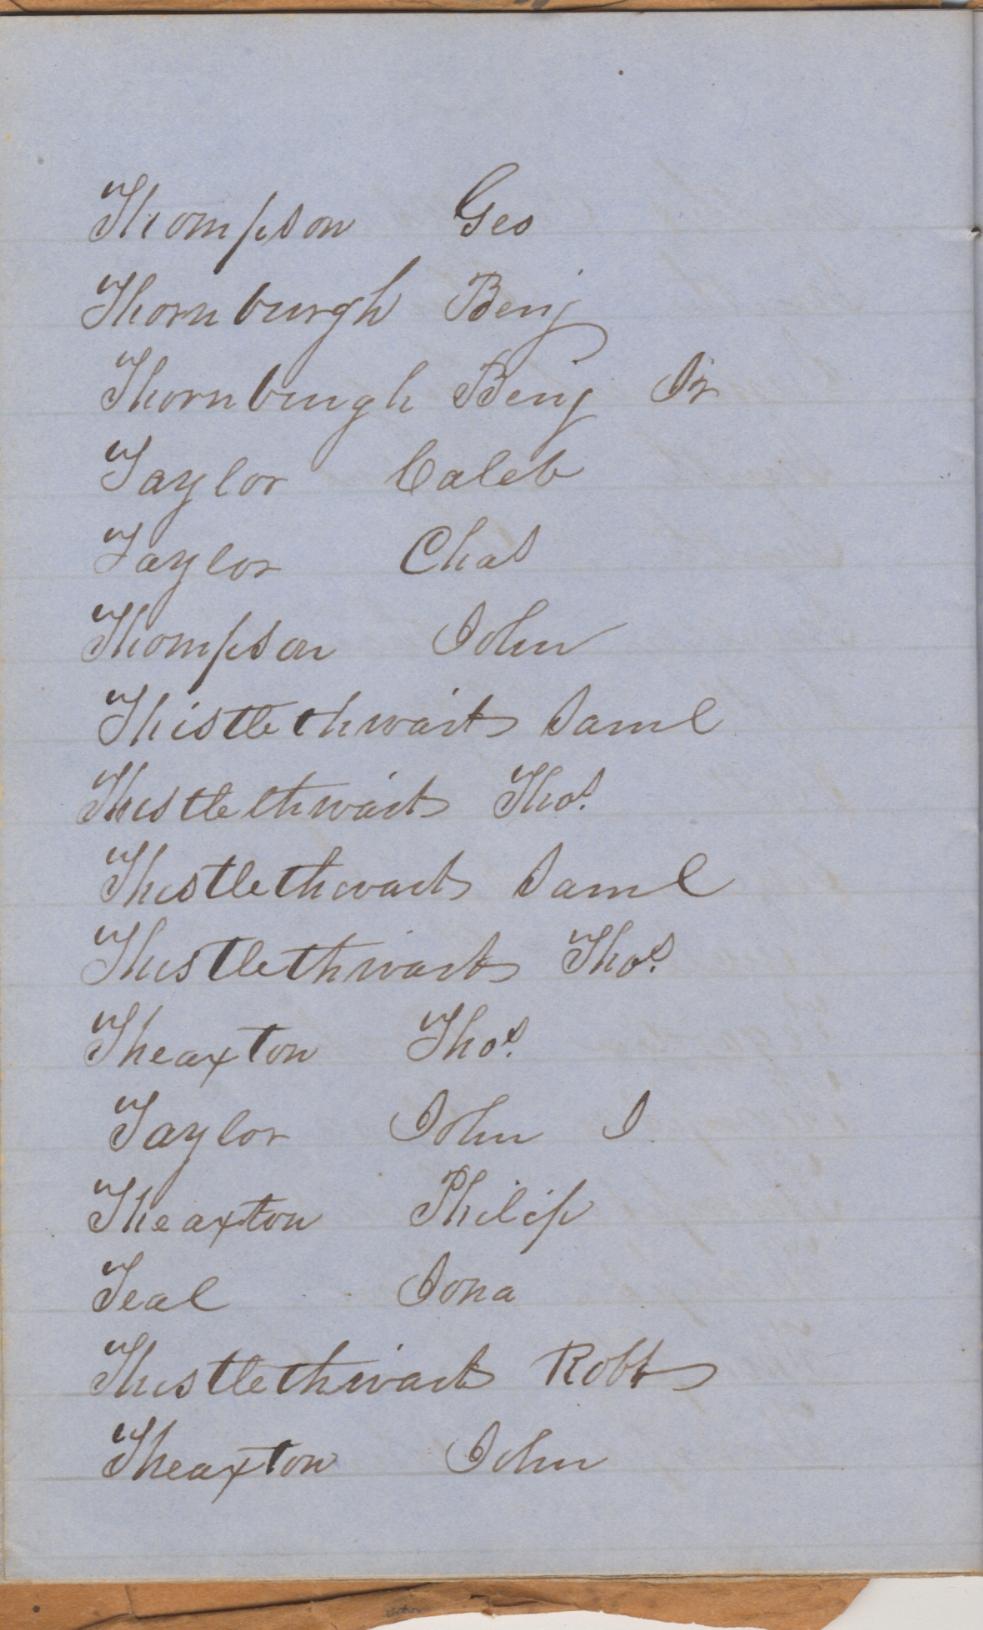 Thompson Geo
Thornburgh Benj
Thornburgh Benj Jr
Taylor Caleb
Taylor Chas
Thompson John
Thistlethwait Saml
Thistlethwait Thos.
Thistlethwait Saml
Thistlethwait Thos.
Theaxton Thos.
Taylor John J
Theaxton Philip
Teal Jona
Thistlethwait Robt
Theaxton John